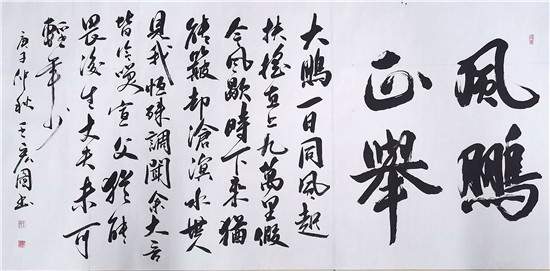 風鵬
正舉
大鵬一日同風起
扶搖直上九萬里假
令風歇時下來猶
能簸却滄溟水世人
見我恒殊調聞余大言
皆冷笑宣父猶能
畏後生丈夫未可
輕年少
庚子仲秋王國書